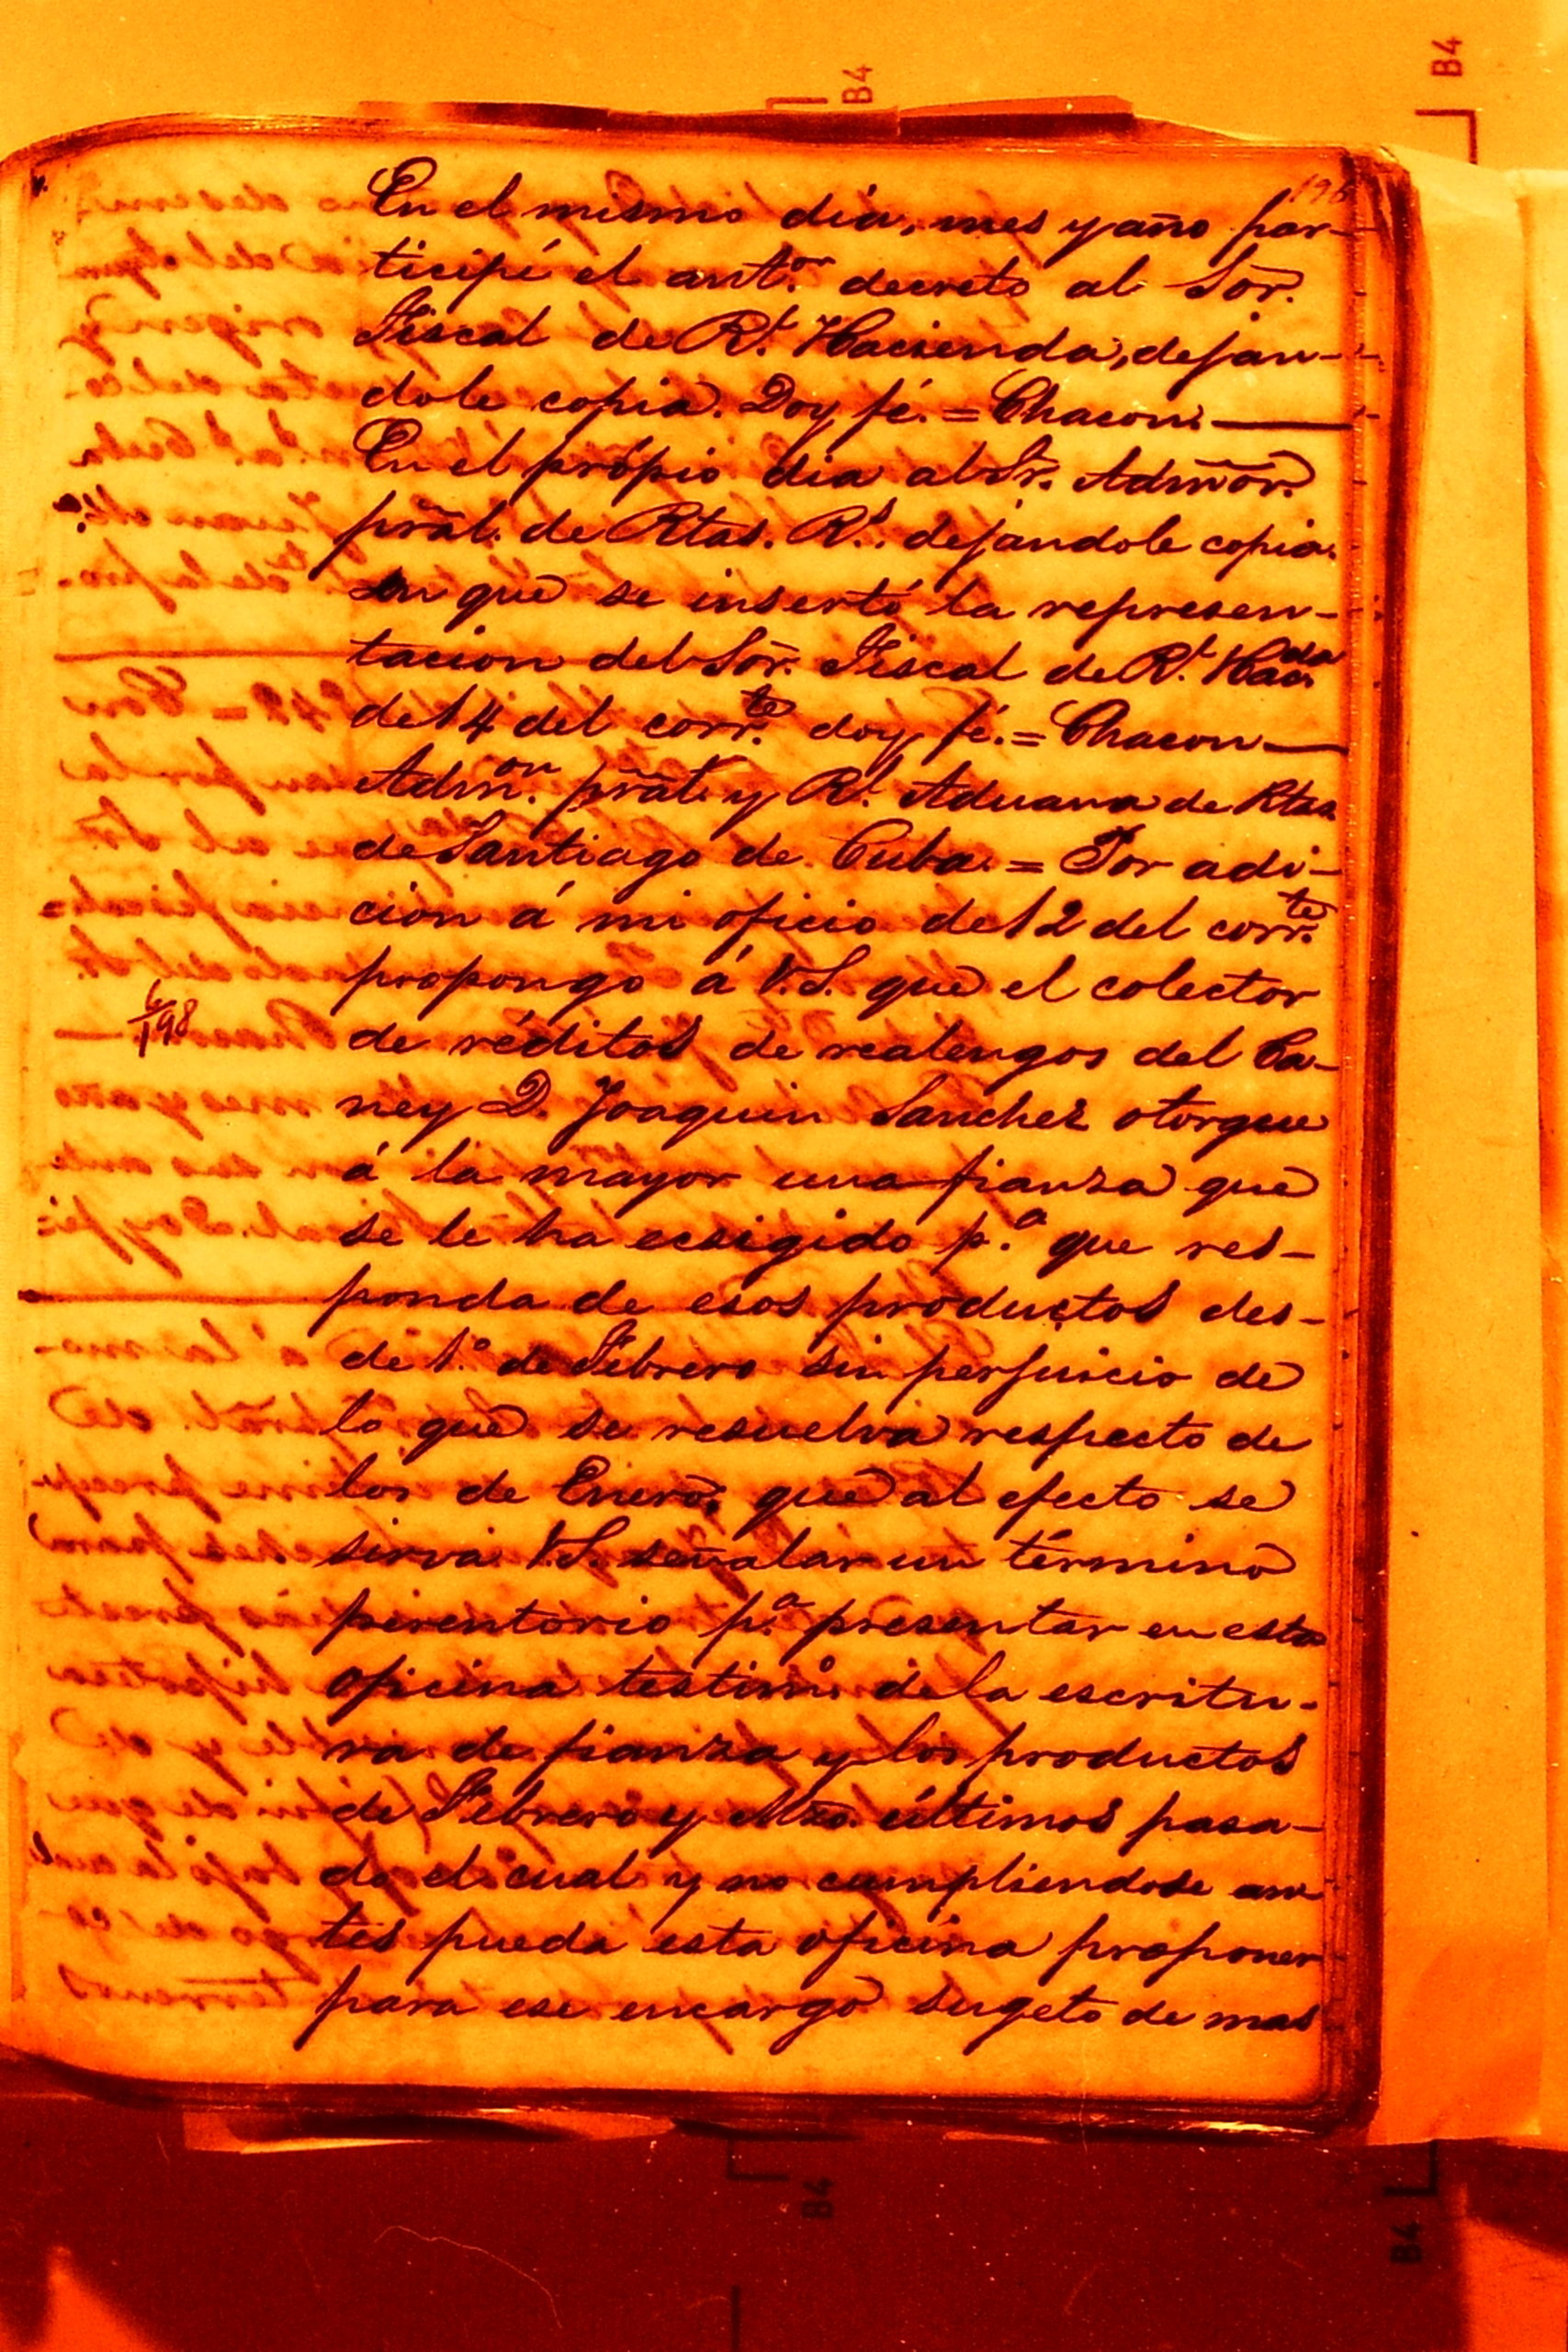 B4
B4
196
En el mismo dia, mes y año par-
ticipé el ant.or decreto al Sõr.
Fiscal de R.l Hacienda, dejan-
dole copia. Doy fé. = Chacon.
En el própio dia al Sr. Admõr.
prãl. de Rtas. R.s dejandole copia
en que se insertó la represen-
tacion del Sõr. Fiscal de R.l Hac.da
del 4 del corr.te doy fé. = Chacon
Adm.on prãl. y R.l Aduana de Rtas
de Santiago de Cuba. = Por adi-
cion á mi oficio del 2 del corr.te
propongo á V.S. que el colector
de réditos de realengos del Ca-
ney D. Joaquin Sanchez otorgue
á la mayor una fianza que
se le ha ecsigido p.a que res-
ponda de esos productos des-
de 1.o de Febrero sin perjuicio de
lo que se resuelva respecto de
los de Enero, que al efecto se
sirva V.S. señalar un término
perentorio p.a presentar en esta
oficina testim.o de la escritu-
ra de fianza y los productos
de Febrero y Mzo. últimos pasa-
do el cual y no cumpliendose an-
tes pueda esta oficina proponer
para ese encargo sugeto de mas
198
B4
B4